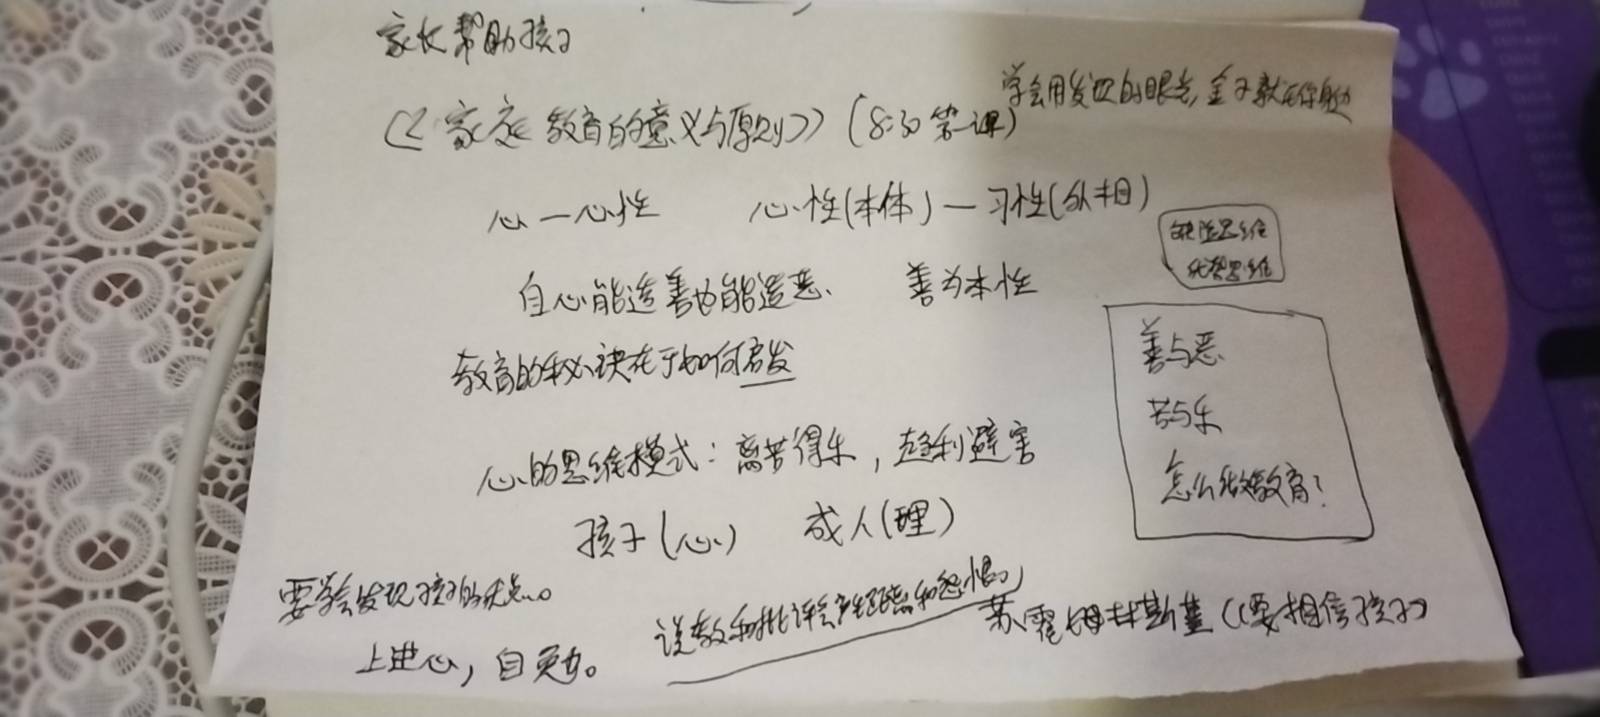 家长帮助孩子
学会用发现的眼光,金子就在你身边
《家庭教育的意义与原则》(8:30 第一课)
心—心性 心性(本体)—习性(外相)
缺陷思维
优势思维
自心能造善也能造恶、 善为本性
善与恶
教育的秘诀在于如何启发
苦与乐
心的思维模式:离苦得乐,趋利避害
怎么做教育?
孩子(心) 成人(理)
要学会发现孩子的优点。
说教和批评会产生距离和怨恨。
苏霍姆林斯基《要相信孩子》
上进心,自觉。